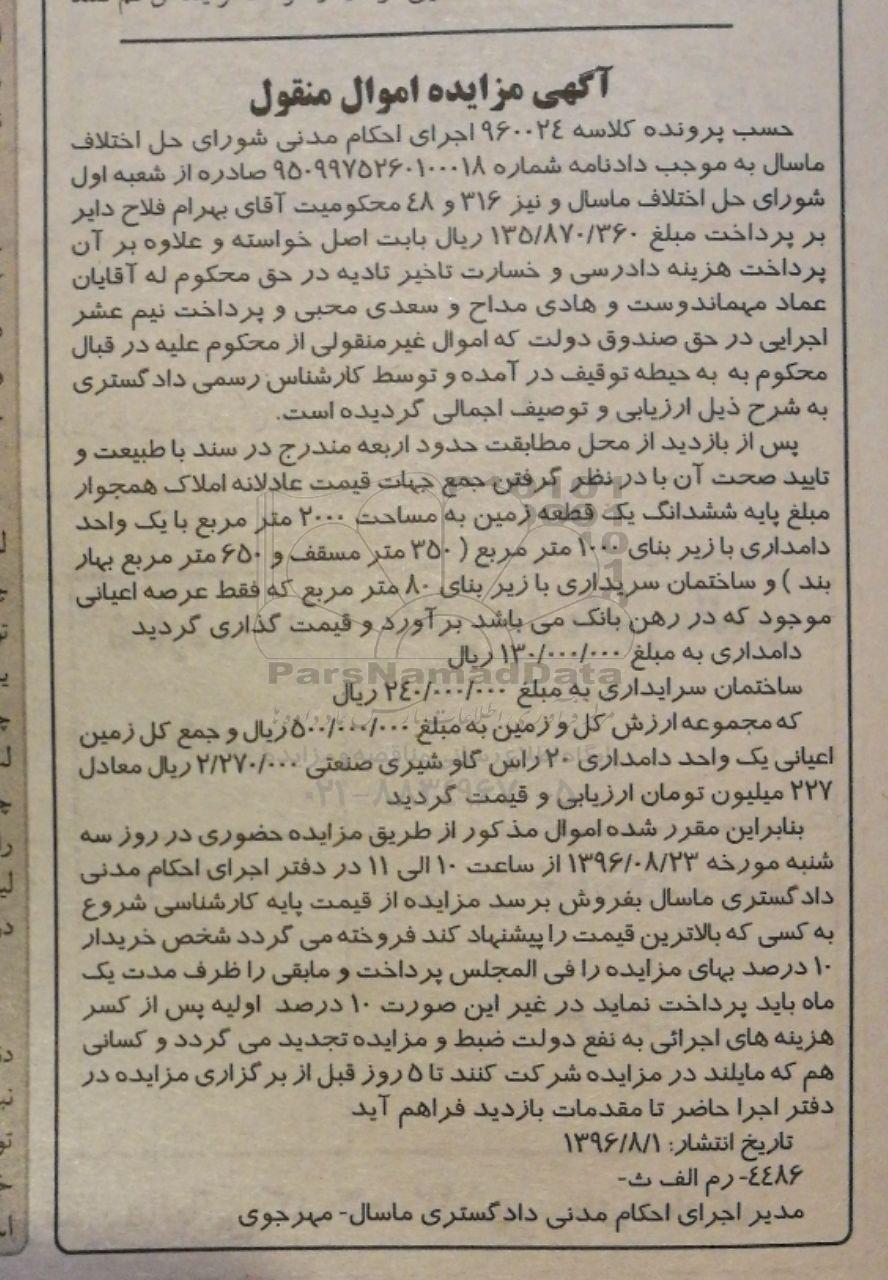 آگهی مزایده اموال منقول
حسب پرونده کلاسه ۹۶۰۰۲۴ اجرای احکام مدنی شورای حل اختلاف
ماسال به موجب دادنامه شماره ۹۵۰۹۹۷۵۲۶۰۱۰۰۰۱۸ صادره از شعبه اول
شورای حل اختلاف ماسال و نیز ۳۱۶ و ۴۸ محکومیت آقای بهرام فلاح دایر
بر پرداخت مبلغ ۱۳۵/۸۷۰/۳۶۰ ریال بابت اصل خواسته و علاوه بر آن
پرداخت هزینه دادرسی و خسارت تاخیر تادیه در حق محکوم له آقایان
عماد مهماندوست و هادی مداح و سعدی محبی و پرداخت نیم عشر
اجرایی در حق صندوق دولت که اموال غیرمنقولی از محکوم علیه در قبال
محکوم به به حیطه توقیف در آمده و توسط کارشناس رسمی دادگستری
به شرح ذیل ارزیابی و توصیف اجمالی گردیده است.
پس از بازدید از محل مطابقت حدود اربعه مندرج در سند با طبیعت و
تایید صحت آن با در نظر گرفتن جمع جهات قیمت عادلانه املاک همجوار
مبلغ پایه ششدانگ یک قطعه زمین به مساحت ۲۰۰۰ متر مربع با یک واحد
دامداری با زیر بنای ۱۰۰۰ متر مربع ( ۳۵۰ متر مسقف و ۶۵۰ متر مربع بهار
بند ) و ساختمان سریداری با زیر بنای ۸۰ متر مربع که فقط عرصه اعیانی
موجود که در رهن بانک می باشد برآورد و قیمت گذاری گردید
دامداری به مبلغ ۱۳۰/۰۰۰/۰۰۰ ریال
ParsNamadData
ساختمان سرایداری به مبلغ ۲۴۰/۰۰۰/۰۰۰ ریال
که مجموعه ارزش کل و زمین به مبلغ ۵۰۰/۰۰۰/۰۰۰ ریال و جمع کل زمین
اعیانی یک واحد دامداری ۲۰ راس گاو شیری صنعتی ۲/۲۷۰/۰۰۰ ریال معادل
۲۲۷ میلیون تومان ارزیابی و قیمت گردید
بنابراین مقرر شده اموال مذکور از طریق مزایده حضوری در روز سه
شنبه مورخه ۱۳۹۶/۰۸/۲۳ از ساعت ۱۰ الی ۱۱ در دفتر اجرای احکام مدنی
دادگستری ماسال بفروش برسد مزایده از قیمت پایه کارشناسی شروع
به کسی که بالاترین قیمت را پیشنهاد کند فروخته می گردد شخص خریدار
۱۰ درصد بهای مزایده را فی المجلس پرداخت و مابقی را ظرف مدت یک
ماه باید پرداخت نماید در غیر این صورت ۱۰ درصد اولیه پس از کسر
هزینه های اجرائی به نفع دولت ضبط و مزایده تجدید می گردد و کسانی
هم که مایلند در مزایده شرکت کنند تا ۵ روز قبل از برگزاری مزایده در
دفتر اجرا حاضر تا مقدمات بازدید فراهم آید
تاریخ انتشار: ۱۳۹۶/۸/۱
۴۴۸۶- رم الف ث-
مدیر اجرای احکام مدنی دادگستری ماسال- مهرجوی